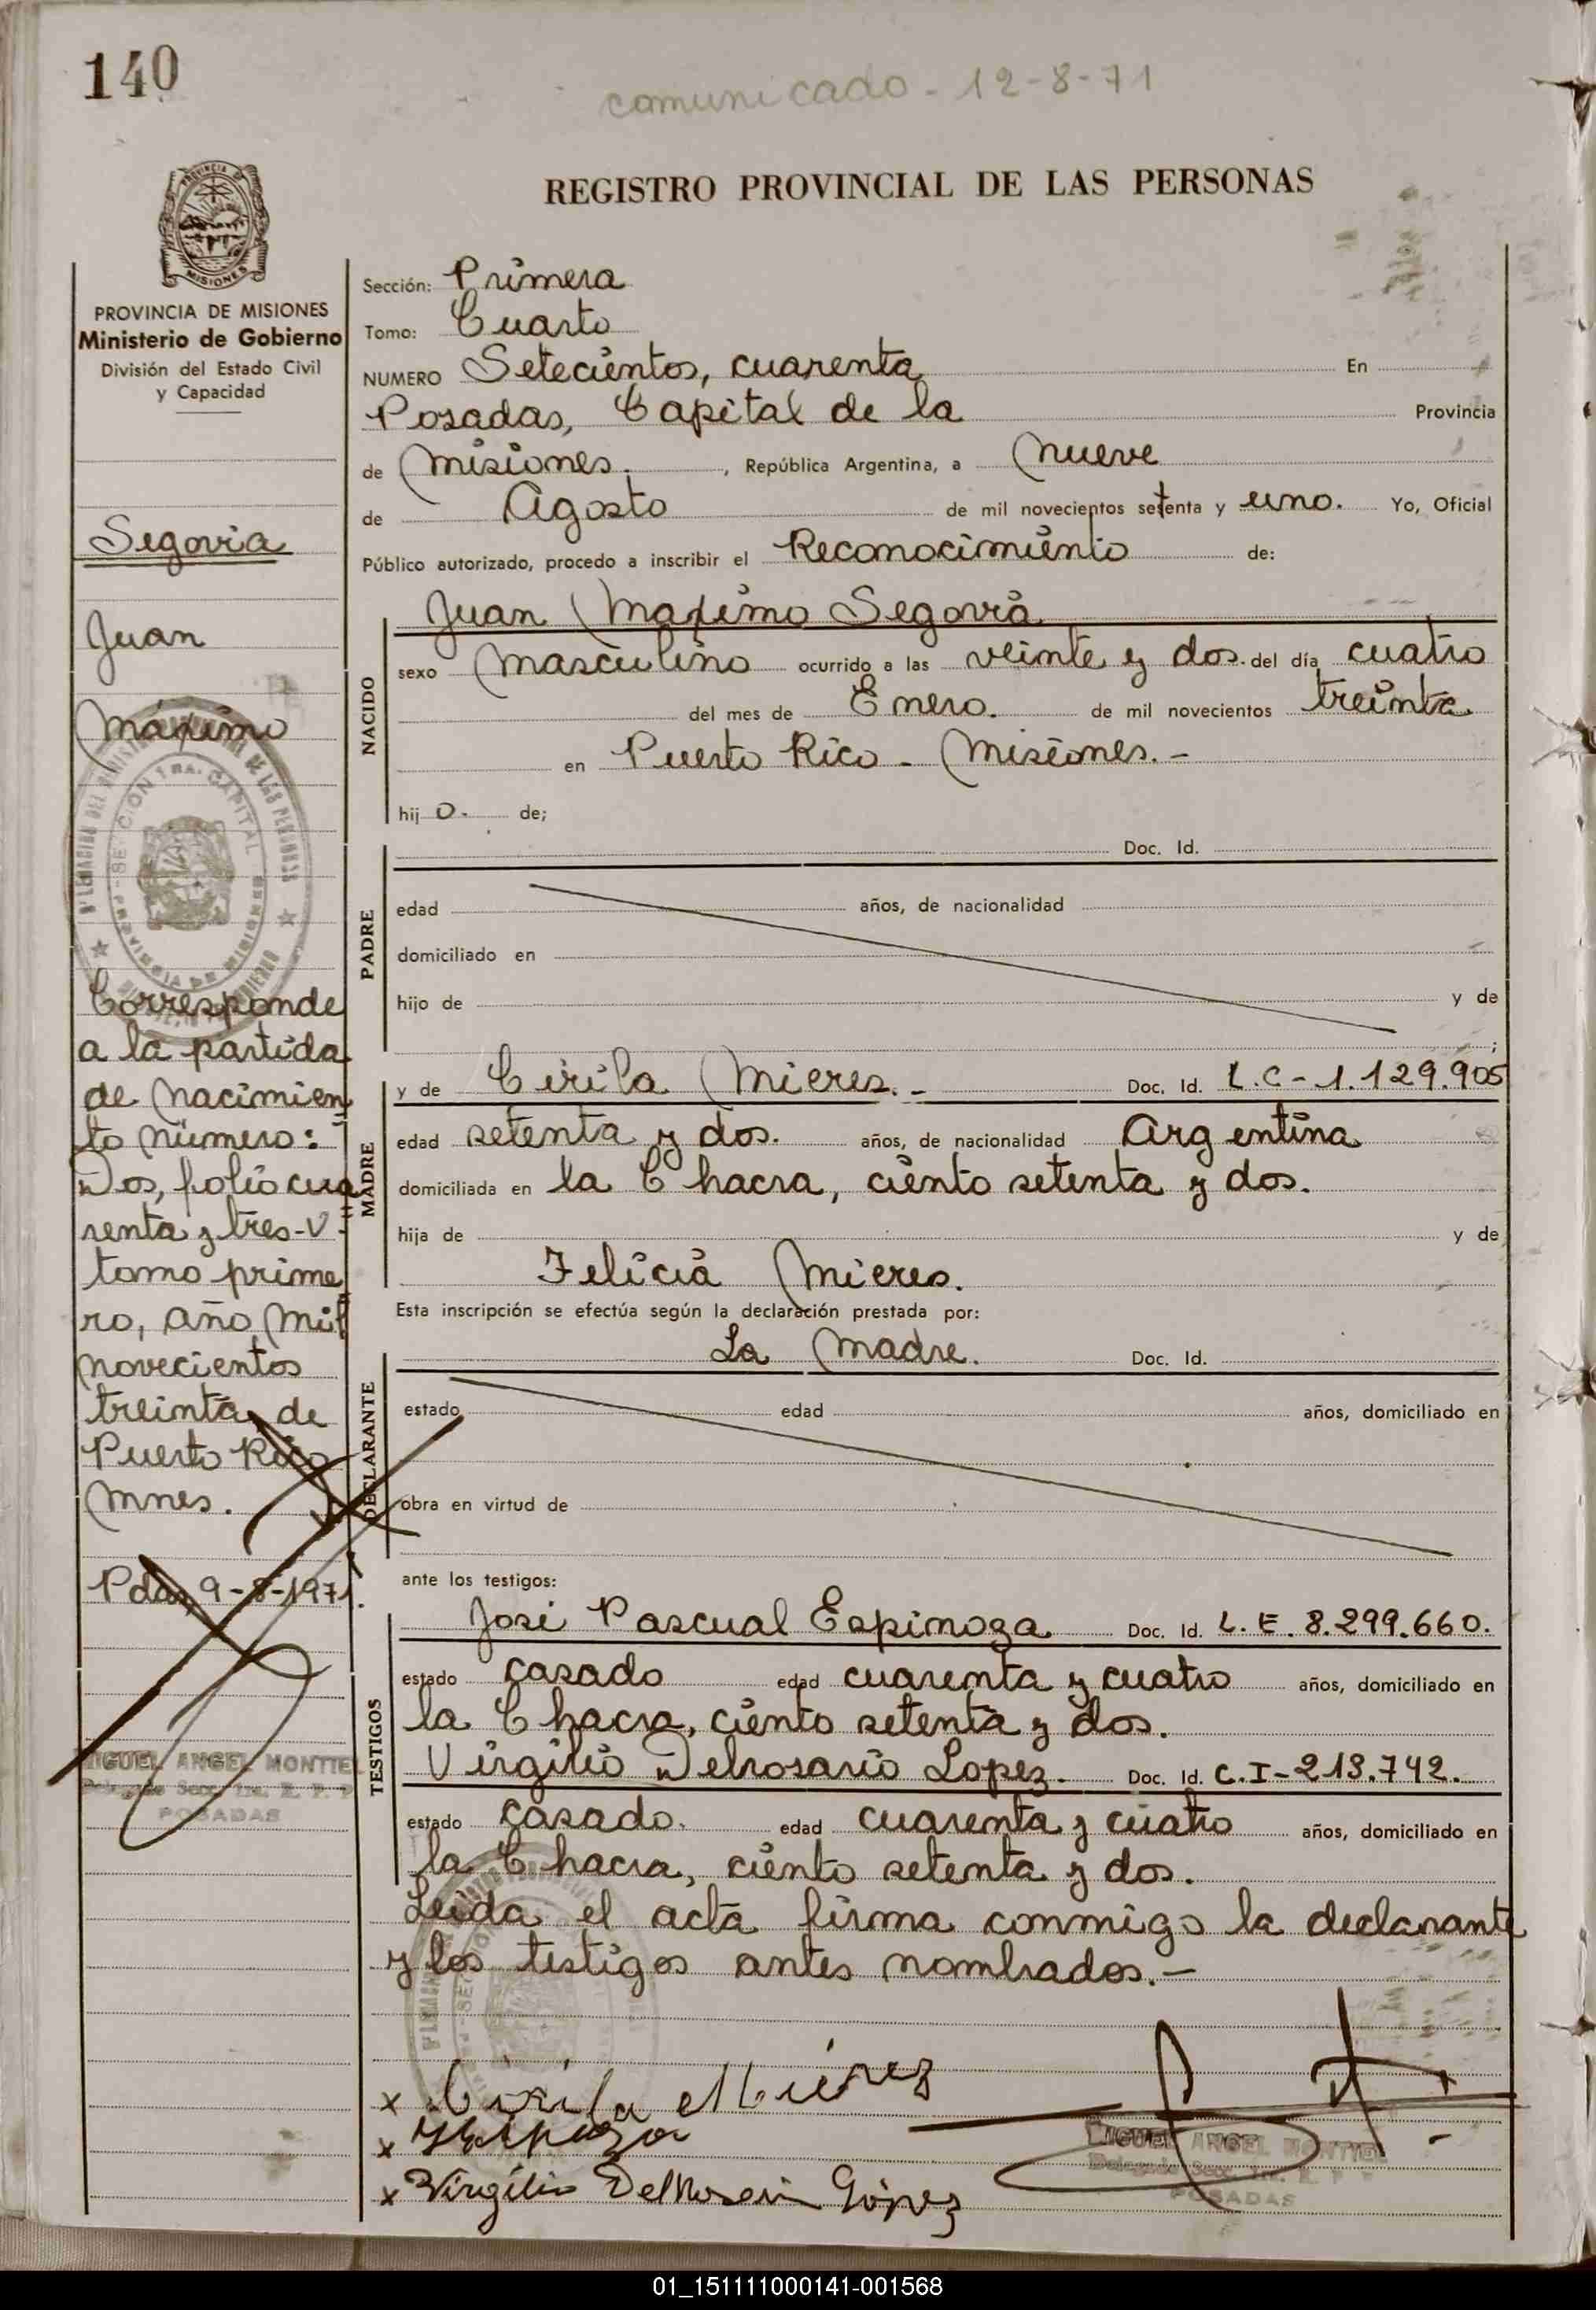 140
comunicado - 12-8-71
REGISTRO PROVINCIAL DE LAS PERSONAS
PROVINCIA DE MISIONES
Ministerio de Gobierno
División del Estado Civil
y Capacidad
Segovia
Juan
Máximo
Corresponde
a la partida
de nacimien
to número:
Dos, folio cua
renta y tres-V-
tomo prime
ro, año mil
novecientos
treinta de
Puerto Rico
Mnes.
Pdas, 9-8-1971.
MIGUEL ANGEL MONTIEL
POSADAS
Sección: Primera
Tomo: Cuarto
NUMERO Setecientos, cuarenta En
Posadas, Capital de la Provincia
de Misiones. , República Argentina, a Nueve
de Agosto de mil novecientos setenta y uno. Yo, Oficial
Público autorizado, procedo a inscribir el Reconocimiento de:
NACIDO
Juan Maximo Segovia
sexo Masculino ocurrido a las veinte y dos. del día cuatro
del mes de Enero. de mil novecientos treinta
en Puerto Rico - Misiones. -
hij o. de;
PADRE
Doc. Id.
edad años, de nacionalidad
domiciliado en
hijo de y de
;
MADRE
y de Cirila Mieres. - Doc. Id. L.C-1.129.905
edad setenta y dos. años, de nacionalidad Argentina
domiciliada en la Chacra, ciento setenta y dos.
hija de y de
Felicia Mieres.
Esta inscripción se efectúa según la declaración prestada por:
DECLARANTE
La Madre. Doc. Id.
estado edad años, domiciliado en
obra en virtud de
ante los testigos:
TESTIGOS
José Pascual Espinoza Doc. Id. L.E. 8.299.660.
estado casado edad cuarenta y cuatro años, domiciliado en
la Chacra, ciento setenta y dos.
Virgilio Delrosario Lopez. Doc. Id. C.I-213.742.
estado casado. edad cuarenta y cuatro años, domiciliado en
la Chacra, ciento setenta y dos.
Leida el acta firma conmigo la declarante
y los testigos antes nombrados. -
x Cirila Mierez
x
x Virgilio
MIGUEL ANGEL MONTIEL
POSADAS
01_151111000141-001568